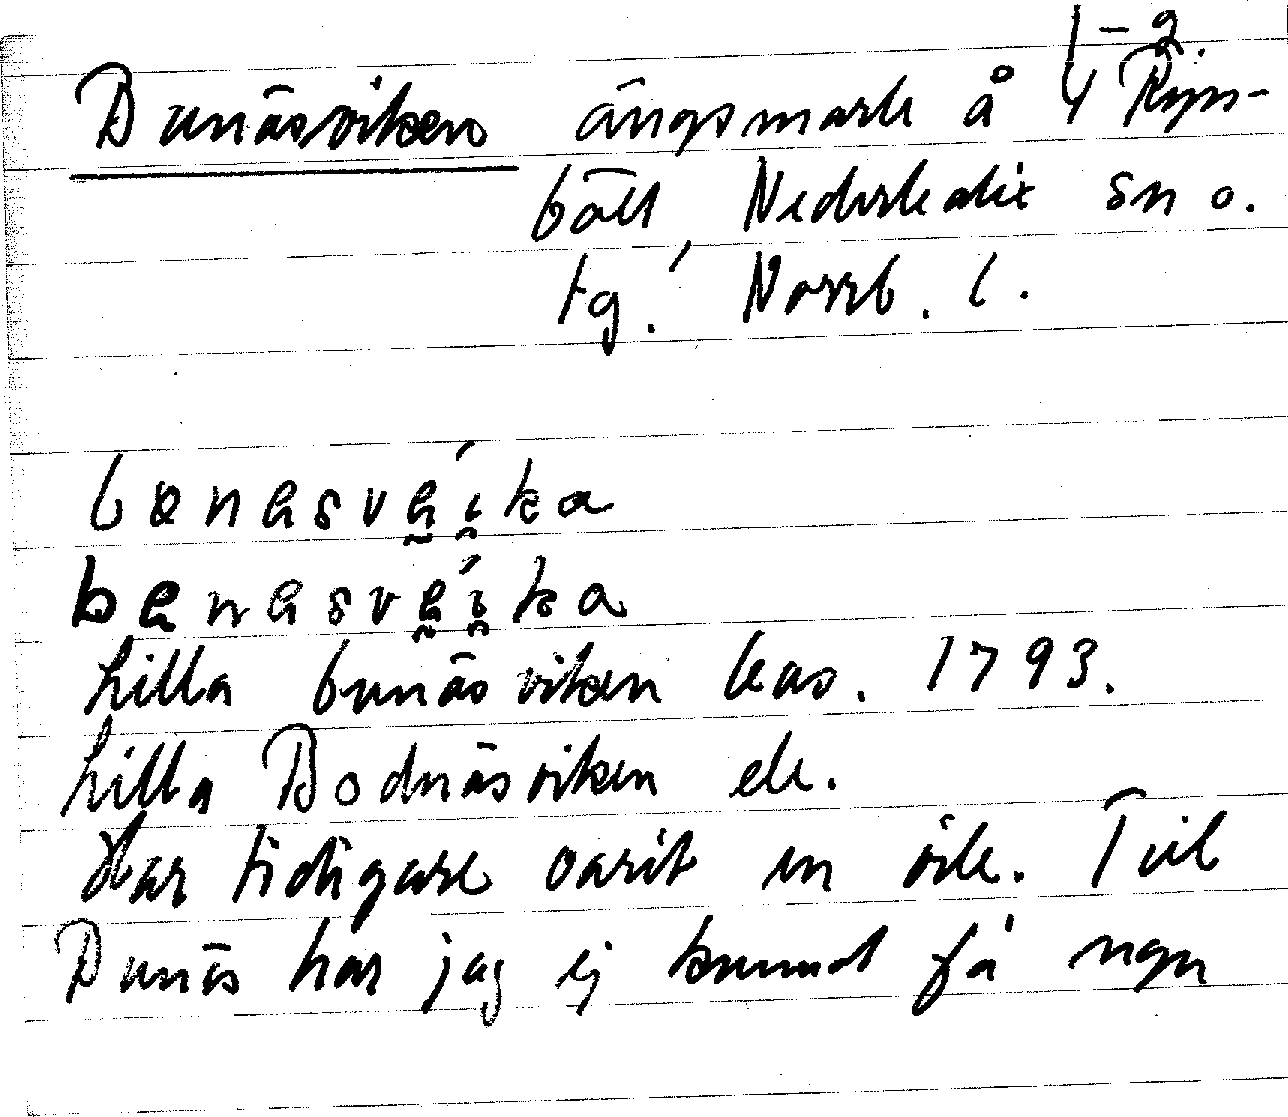 1-2.
Bunäsviken ängsmark å 4 Ryss-
bält, Nederkalix sn o.
tg. Norrb. l.
bonasvéika
benasvéika
Lilla bunäsviken kas. 1793.
Lilla Bodnäsviken ek.
Har tidigare varit en vik. Till
Bunäs har jag ej kunnat få ngn